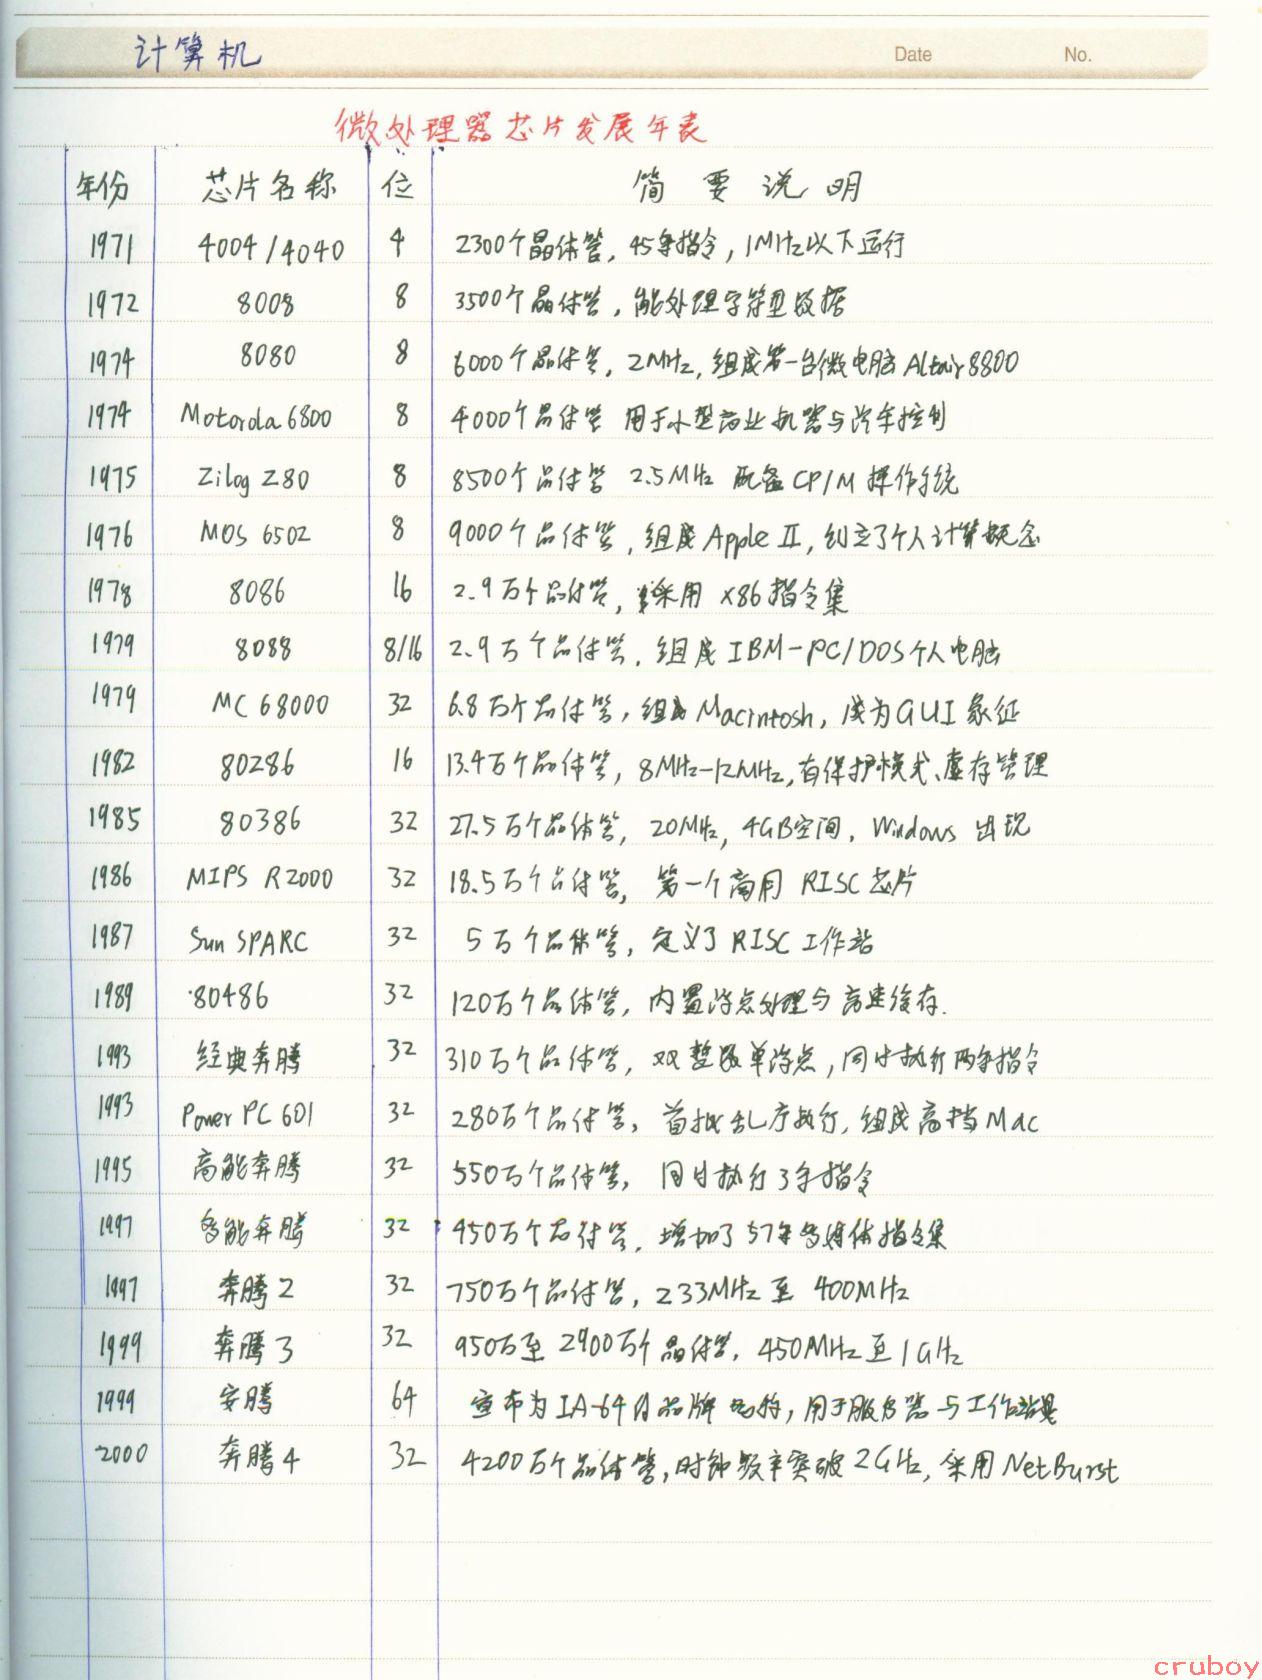 计算机 Date No.
微处理器芯片发展年表
年份 芯片名称 位 简要说明
1971 4004/4040 4 2300个晶体管，45条指令，1MHz以下运行
1972 8008 8 3500个晶体管，能处理字符型数据
1974 8080 8 6000个晶体管，2MHz，组成第一台微电脑Altair8800
1974 Motorola 6800 8 4000个晶体管 用于小型商业机器与汽车控制
1975 Zilog Z80 8 8500个晶体管 2.5MHz 配备CP/M操作系统
1976 MOS 6502 8 9000个晶体管，组成Apple II，创立了个人计算概念
1978 8086 16 2.9万个晶体管，采用X86指令集
1979 8088 8/16 2.9万个晶体管，组成IBM-PC/DOS个人电脑
1979 MC 68000 32 6.8万个晶体管，组成Macintosh，成为GUI象征
1982 80286 16 13.4万个晶体管，8MHz-12MHz，有保护模式、虚存管理
1985 80386 32 27.5万个晶体管，20MHz，4GB空间，Windows 出现
1986 MIPS R2000 32 18.5万个晶体管，第一个商用RISC芯片
1987 Sun SPARC 32 5万个晶体管，定义了RISC工作站
1989 80486 32 120万个晶体管，内置浮点处理与高速缓存.
1993 经典奔腾 32 310万个晶体管，双整数单浮点，同时执行两条指令
1993 Power PC 601 32 280万个晶体管，首批乱序执行，组成高档Mac
1995 高能奔腾 32 550万个晶体管，同时执行3条指令
1997 多能奔腾 32 450万个晶体管，增加了57条多媒体指令集
1997 奔腾2 32 750万个晶体管，233MHz至400MHz
1999 奔腾3 32 950万至2900万个晶体管，450MHz至1GHz
1999 安腾 64 宣布为IA-64的品牌，用于服务器与工作站
2000 奔腾4 32 4200万个晶体管，时钟频率突破2GHz，采用NetBurst
cruboy